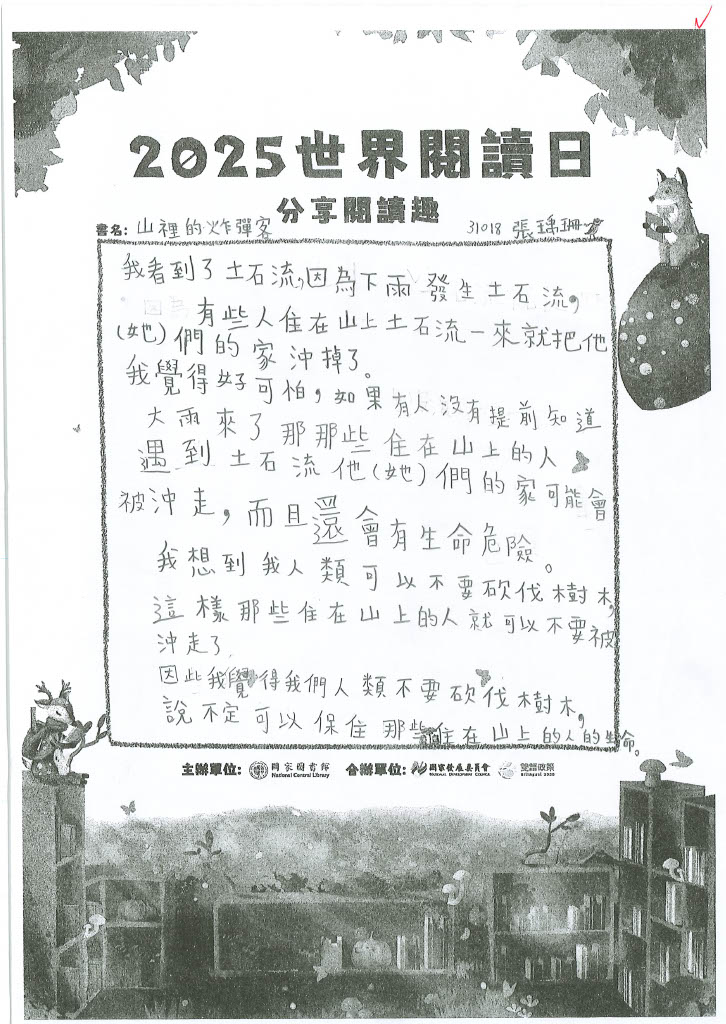 2025世界閱讀日
分享閱讀趣
書名: 山裡的炸彈客 31018 張瑀珊
我看到了土石流,因為下雨發生土石流,
有些人住在山上土石流一來就把他
(她)們的家沖掉了。
我覺得好可怕,如果有人沒有提前知道
大雨來了那那些住在山上的人
遇到土石流他(她)們的家可能會
被沖走,而且還會有生命危險。
我想到我人類可以不要砍伐樹木,
這樣那些住在山上的人就可以不要被
沖走了.
因此我覺得我們人類不要砍伐樹木,
說不定可以保住那些住在山上的人的生命。
主辦單位: 國家圖書館 National Central Library 合辦單位: 國家發展委員會 NATIONAL DEVELOPMENT COUNCIL 雙語政策 Bilingual 2030